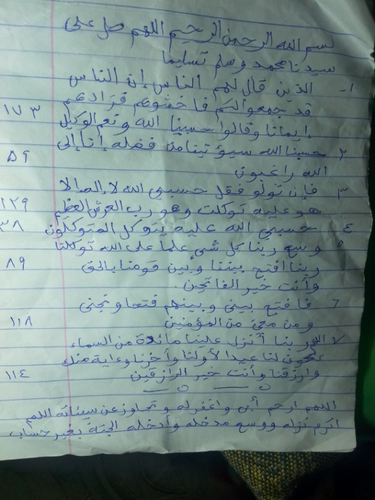 بسم الله الرحمن الرحيم اللهم صل على
سيدنا محمد وسلم تسليما
١- الذين قال لهم الناس إن الناس
قد جمعوا لكم فاخشوهم فزادهم
إيمانا وقالوا حسبنا الله ونعم الوكيل ١٧٣
٢ حسبنا الله سيؤتينا من فضله إنا إلى
الله راغبون ٥٩
٣ فإن تولو فقل حسبي الله لا إله إلا
هو عليه توكلت وهو رب العرش العظيم ١٢٩
٤ حسبي الله عليه يتوكل المتوكلون ٣٨
٥ وسع ربنا كل شئ علما على الله توكلنا
ربنا افتح بيننا وبين قومنا بالحق ٨٩
وأنت خير الفاتحين
٦ فافتح بيني وبينهم فتحا ونجني
ومن معي من المؤمنين ١١٨
٧ اللهم ربنا أنزل علينا مائدة من السماء
تكون لنا عيدا لأولنا وآخرنا وءاية منك
وارزقنا وأنت خير الرازقين ١١٤
اللهم ارحم أبي واغفر له وتجاوز عن سيئاته اللهم
أكرم نزله ووسع مدخله وأدخله الجنة بغير حساب